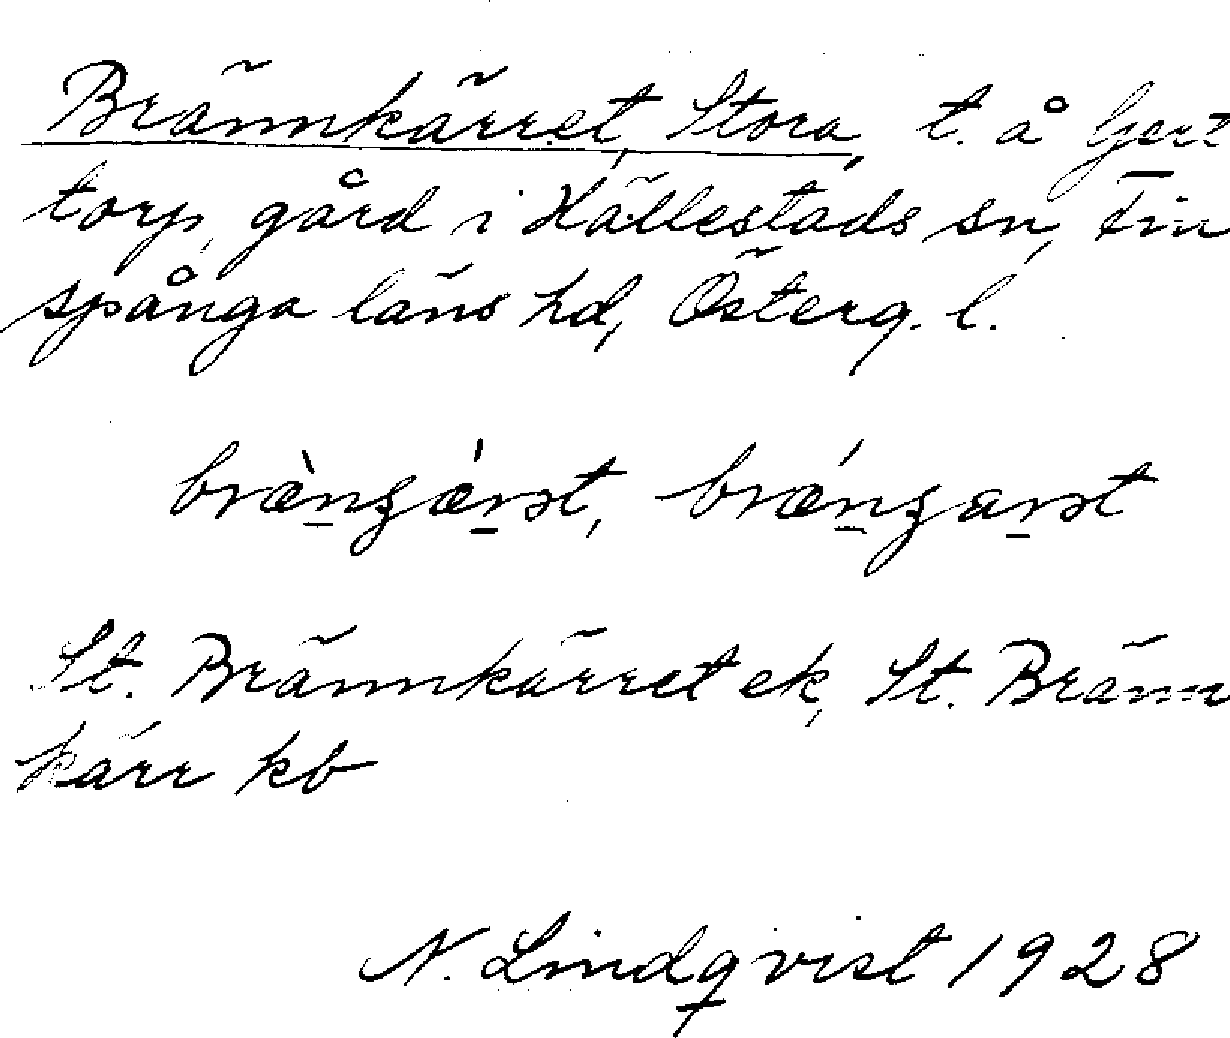 Brännkärret, Stora, t. å Gert
torp, gård i Hällestads sn, Fin
spånga läns hd, Österg. l.
bræ̀nʒæ̀rət, brǽnʒarət
St. Brännkärret ek, St. Bränn
kärr kb
N. Lindqvist 1928